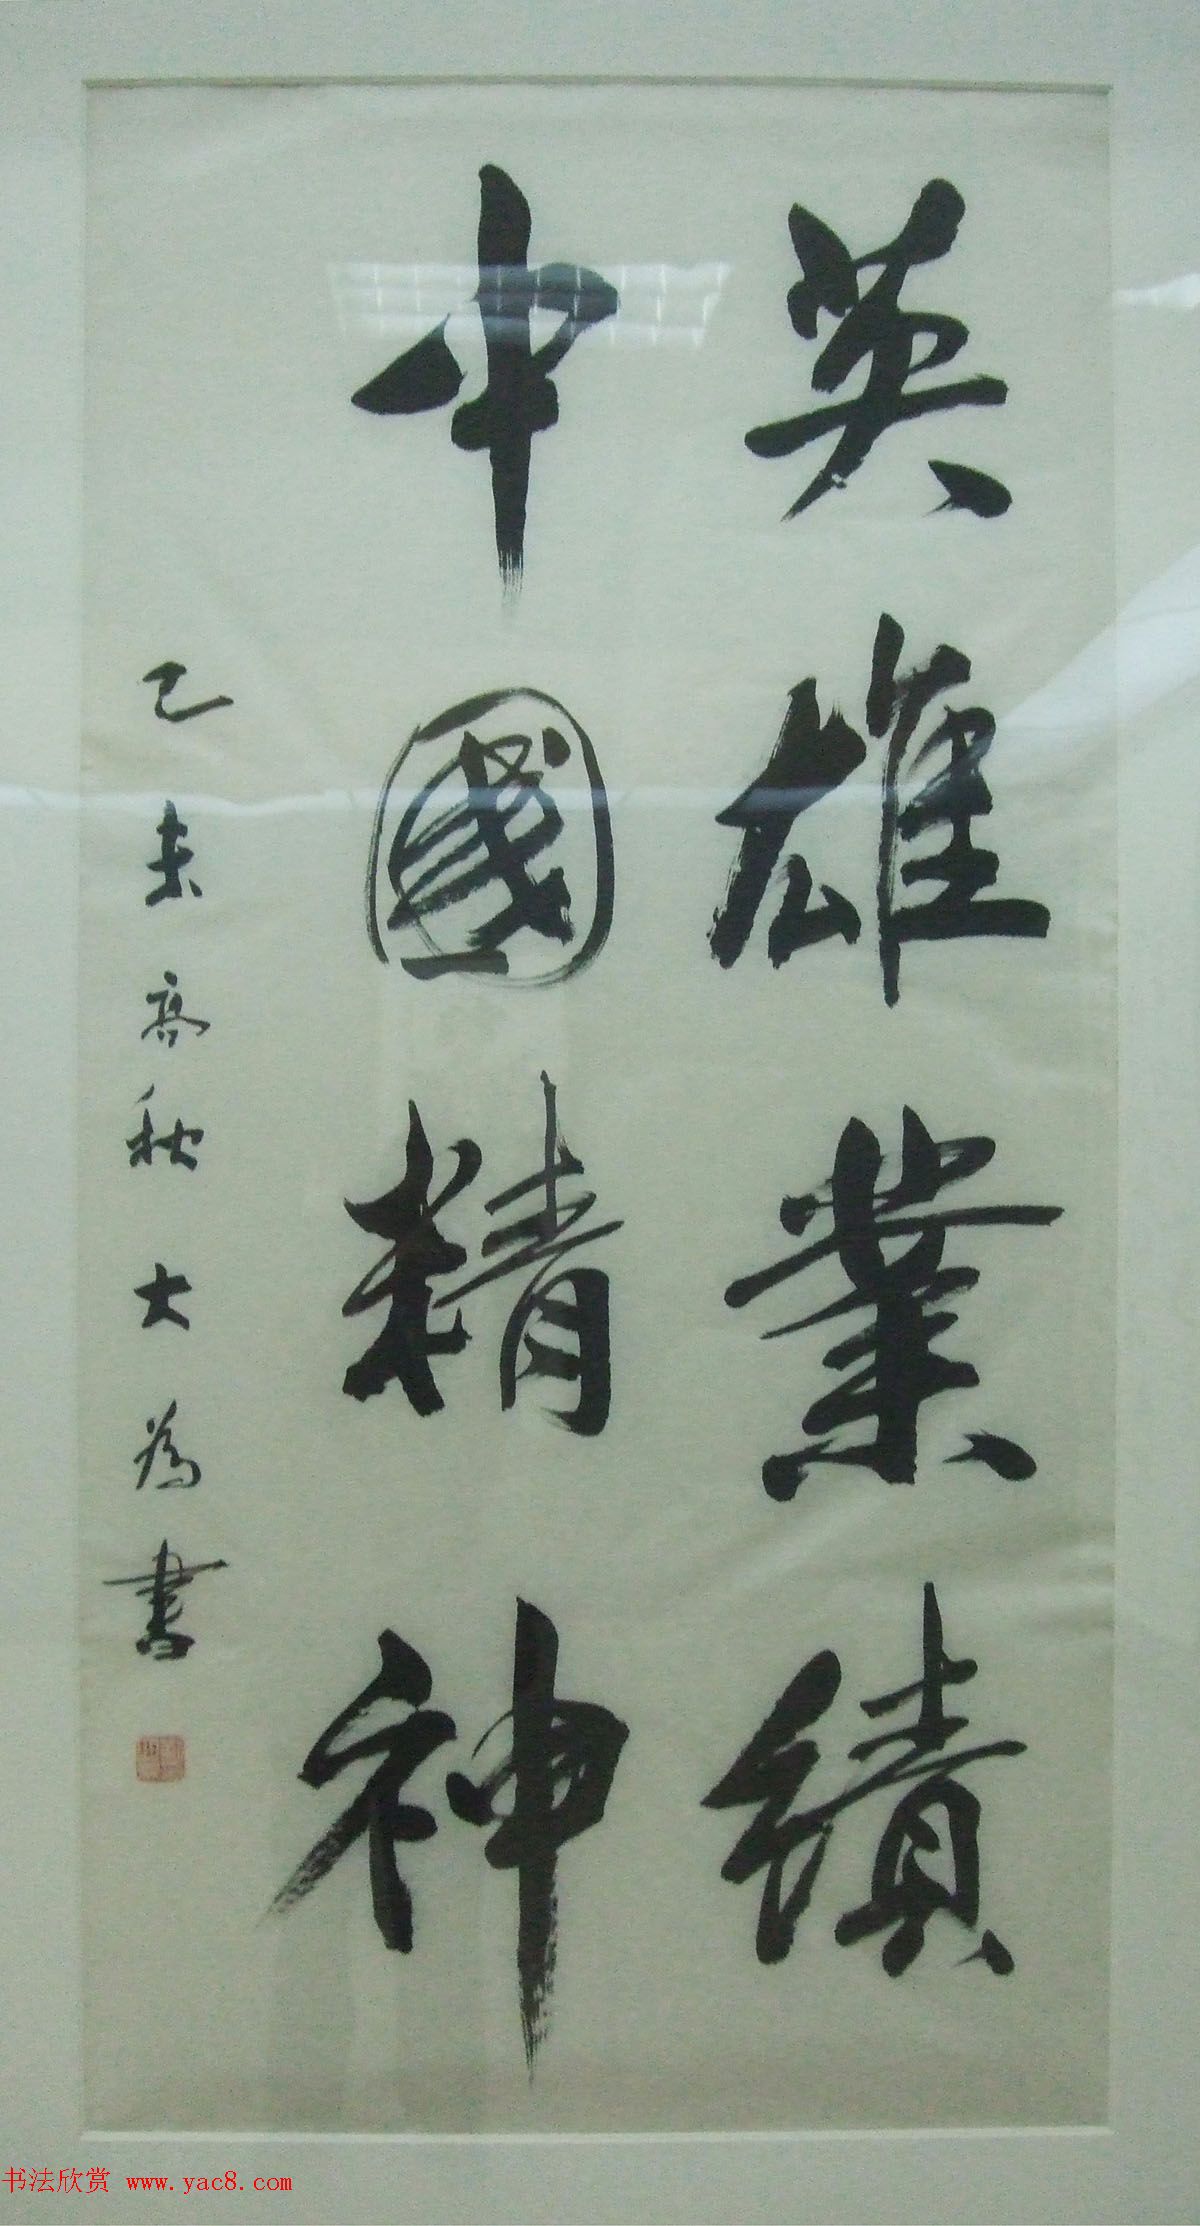 英雄業績
中國精神
乙未高秋大為書
书法欣赏 www.yac8.com